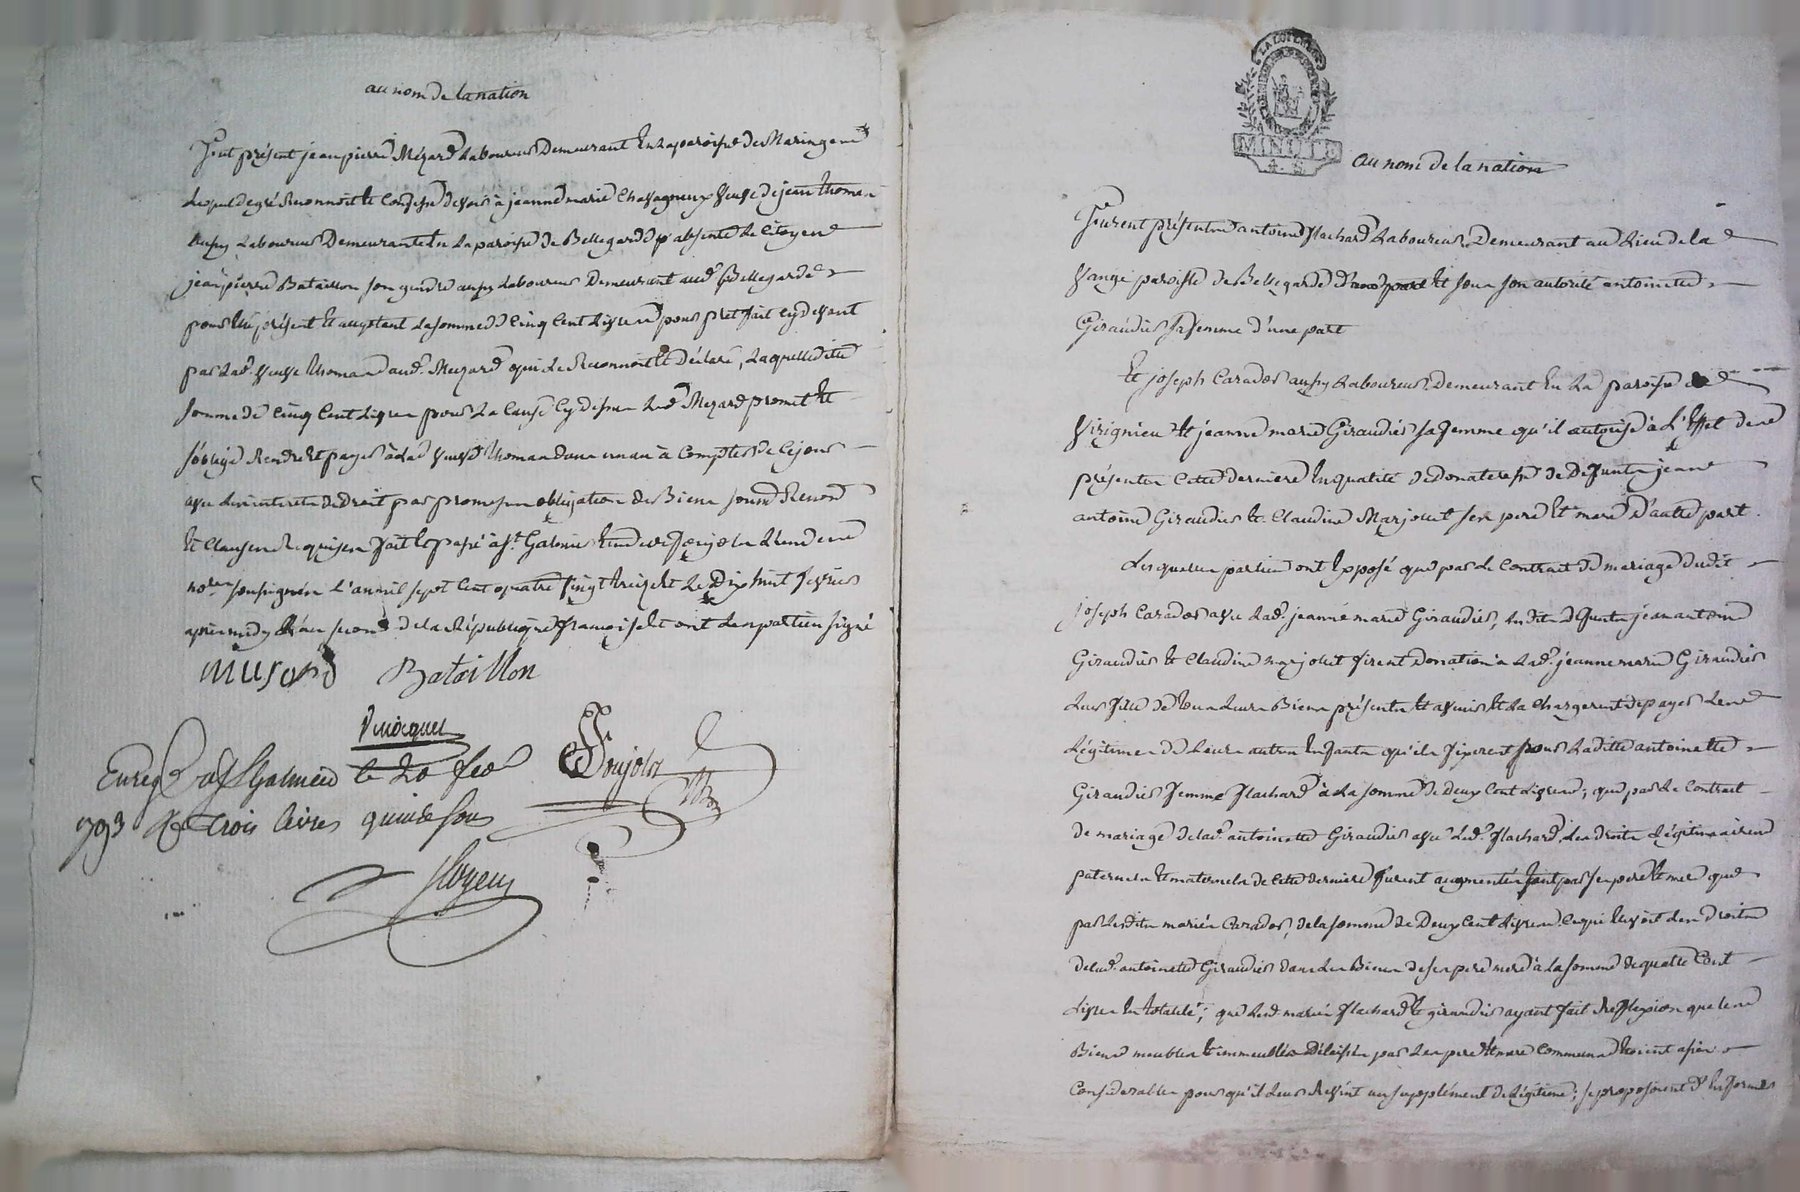 au nom de la nation
fut présent jean pierre Mézard Laboureur Demeurant En la paroisse de Maringe
Lequel de gré Reconnoit et Confesse devoir à jeanne marie Chavagneux veuve de jean Thomas
aussy Laboureur Demeurante En La paroisse de Bellegarde absente Le Citoyen
jean pierre Bataillon son gendre aussy Laboureur Demeurant aud. Bellegarde
pour Elle présent Et acceptant La somme de Cinq Cent Livres pour pret fait cy devant
par Lad. veuve Thomas aud. Mezard qui Le Reconnoit Et Déclare, Laquelle ditte
somme de Cinq Cent Livres pour La Cause Cy dessus Led. Mezard promet Et
s'oblige Rendre Et payer à Lad. veuve Thomas dans un an à Compter de Ce jour
avec Les interets de Droit par promesse obligation de Biens soumis Renon
Et Clauses Requises fait Et passé à St. Galmier
no.res soussignés L'an mil sept Cent quatre vingt treize Et Le Dix huit fevrier
apres midy L'an second de la République françoise Et ont Les parties signé
musard Bataillon
Enreg. a St Galmier le 20 fev
793 R trois livres quinze sous
Soujolu
au nom de la nation
furent présents antoine flachard Laboureur Demeurant au Lieu de la
vange paroisse de Bellegarde d'une part Et sous son autorité antoinette
Giraudier sa femme d'une part
Et joseph Carador aussy Laboureur Demeurant En La paroisse de
virignieu Et jeanne marie Giraudier sa femme qu'il autorise à L'Effet des
présentes Cette derniere En qualité de Donateresse de Defunts jean
antoine Giraudier Et Claudine Marjollet ses pere Et mere D'autre part.
Lesquelles parties ont Exposé que par Le Contrat de mariage dudit
joseph Carador avec Lad. jeanne marie Giraudier, Lesdits defunts jean antoine
Giraudier Et Claudine marjollet firent Donation à Lad. jeanne marie Giraudier
Leur fille de tous Leurs Biens présents Et avenir Et La Chargerent de payer Les
Légitimes de Leurs autres Enfants qu'ils fixerent pour Laditte antoinette
Giraudier femme flachard à La somme de deux Cent Livres; que par Le Contrat
de mariage de lad. antoinette Giraudier avec Led. flachard, Les droits Légitimaires
paternels Et maternels de Cette derniere furent augmentés tant par ses pere Et mere que
par Lesdits mariés Carador, de la somme de Deux Cent Livres Ce qui Elevoit Les Droits
de lad. antoinette Giraudier dans Les Biens de ses pere mere à La somme de quatre Cent
Livres En totalité; que Lesd. mariés flachard Et giraudier ayant fait Reflexion que les
Biens meubles Et immeubles Délaissés par Les pere Et mere Communs Etoient assés
Considerables pour qu'il Leur Revint un supplément de Légitime; se proposoient d'En former